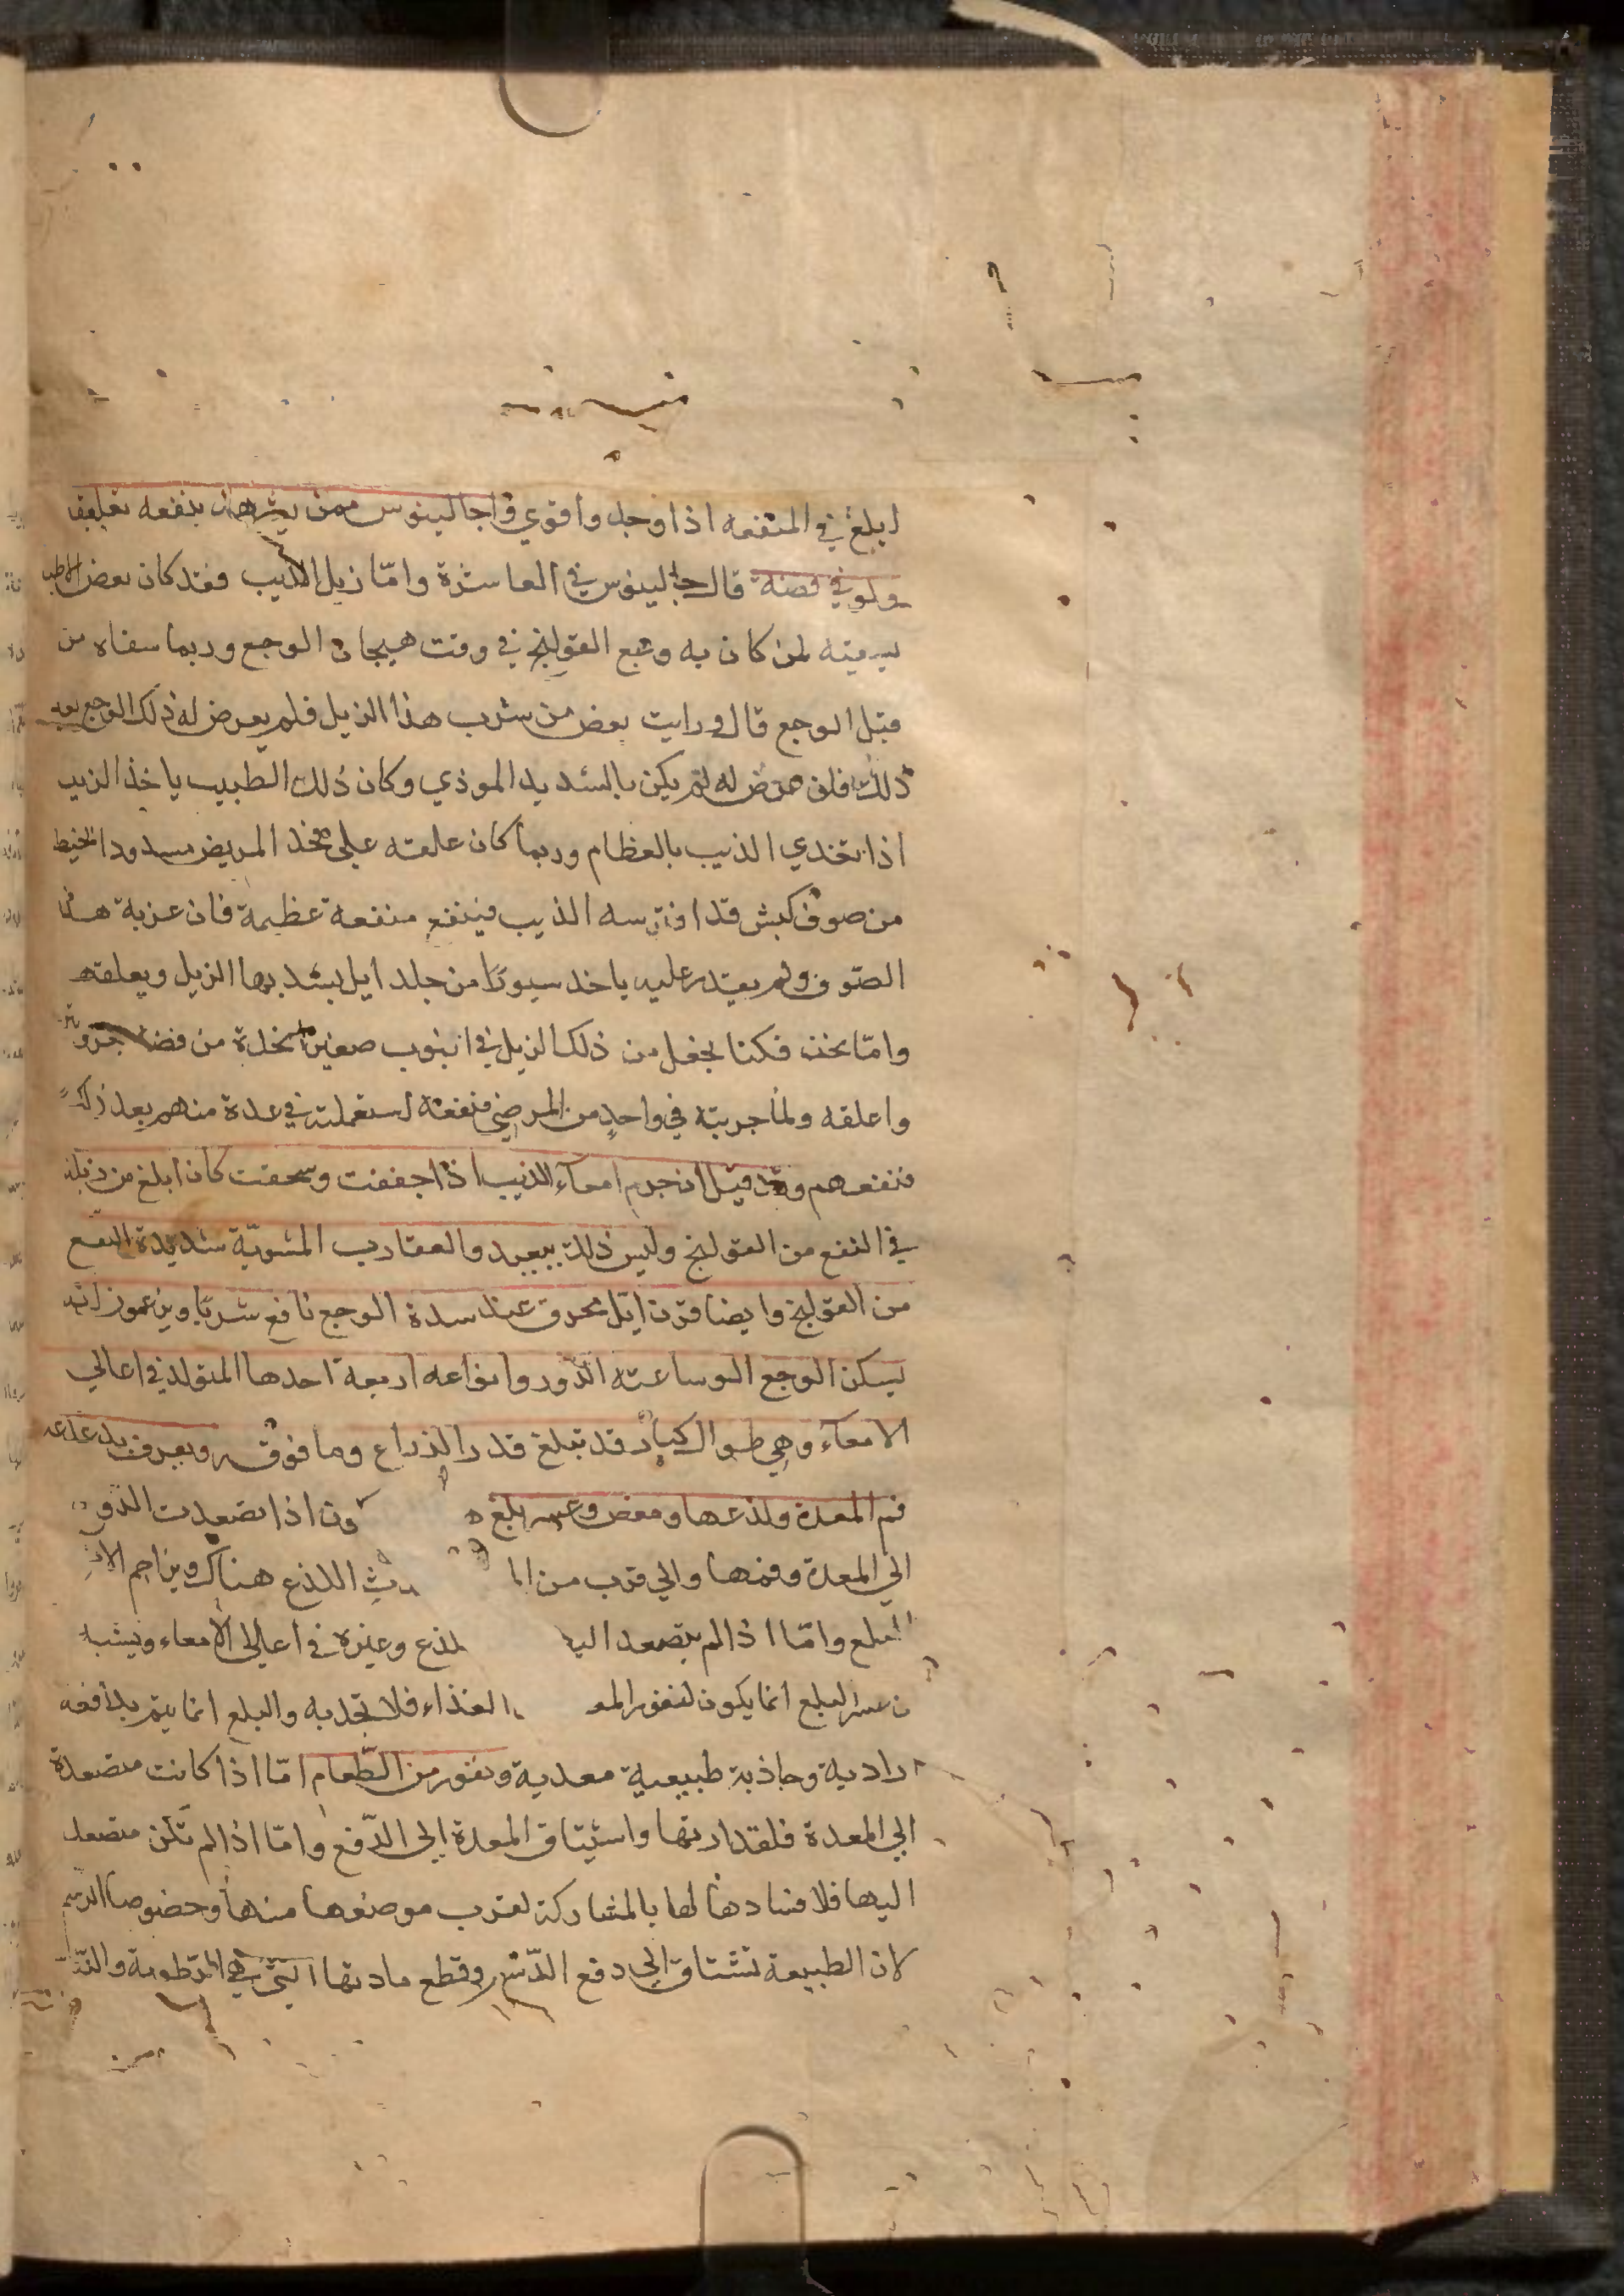 ابلغ في المنفعه اذا وجد واقوي واجالينوس ممن يشهد ان ينفعه تعليقا
ولو في فضة قال جالينوس في العاشرة وامّا زبل الذيب فقد كان بعض الاطبا
يسقيه لمن كان به وجع القولنج في وقت هيجان الوجع وربما سقاه من
قبل الوجع قال ورايت بعض من شرب هذا الزبل فلم يعرض له ذلك الوجع بعد
ذلك فان عرض له لم يكن بالشديد الموذي وكان ذلك الطبيب ياخذ الزبل
اذا تغدي الذيب بالعظام وربما كان علقه علي فخذ المريض مسدودا بخيط
من صوف كبش قد افترسه الذيب فينتفع منفعة عظيمة فان عزبة هذا
الصّوف ولم يقدر عليه ياخد سيورًا من جلد ايل يشد بها الزبل ويعلقه
وامّا نحن فكنا نجعل من ذلك الزبل في انبوب صغير متخذة من فضة
واعلقه ولما جربته في واحدٍ من المرضي فنفعه استعملته في عدة منهم بعد ذلك
فنفعهم وقد قيل ان جرم امعآء الذيب اذا جففت وسحقت كان ابلغ من زبله
في النفع من القولنج وليس ذلك ببعيد والعقارب المشويّة شديدة النفع
من القولنج وايضا قرن ايّل محرق عند شدة الوجع نافع شربا ويزعمون انه
يسكن الوجع لوساعته الدّود وانواعه اربعة احدها المتولد في اعالي
الامعآء وهي طوال كبار قد تبلغ قدر الذراع وما فوقه ويعرف بدغدغه
فم المعدة ولذعها ومغص وعسر بلع ون اذا تصعدت الدّود
الي المعدة وفمها والي قرب من الم دث اللذع هناك ويزاحم الا
البلع وامّا اذا لم يتصعد اليها لذع وغيره في اعالي الامعاء ويشبه
ن عسر البلع انما يكون لنفور المعد الغذاء فلا تجذبه والبلع انما يتم بدافعه
ارادية وجاذبة طبيعية معدية ونفور من الطّعام امّا اذا كانت متصعدة
الي المعدة فلقذارتها واشتياق المعدة الي الدّفع وامّا اذا لم تكن متصعد
اليها فلافسادها لها بالمشاركة لقرب موضعها منها وخصوصا الدّسم
لان الطبيعة تشتاق الي دفع الدّسم وقطع مادتها التي هي الرطوبة